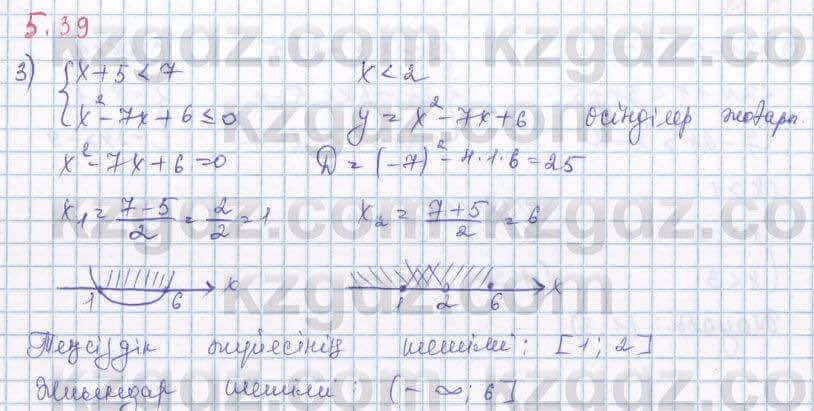 5.39
3) { x + 5 < 7    x < 2
x² - 7x + 6 ≤ 0    y = x² - 7x + 6    өсінділер жоғары.
x² - 7x + 6 = 0    D = (-7)² - 4·1·6 = 25
x₁ = (7-5)/2 = 2/2 = 1    x₂ = (7+5)/2 = 6
1 6 x    1 2 6 x
Теңсіздік жүйесінің шешімі: [1; 2]
Жиындар шешімі: (-∞; 6]
kzgdz.com